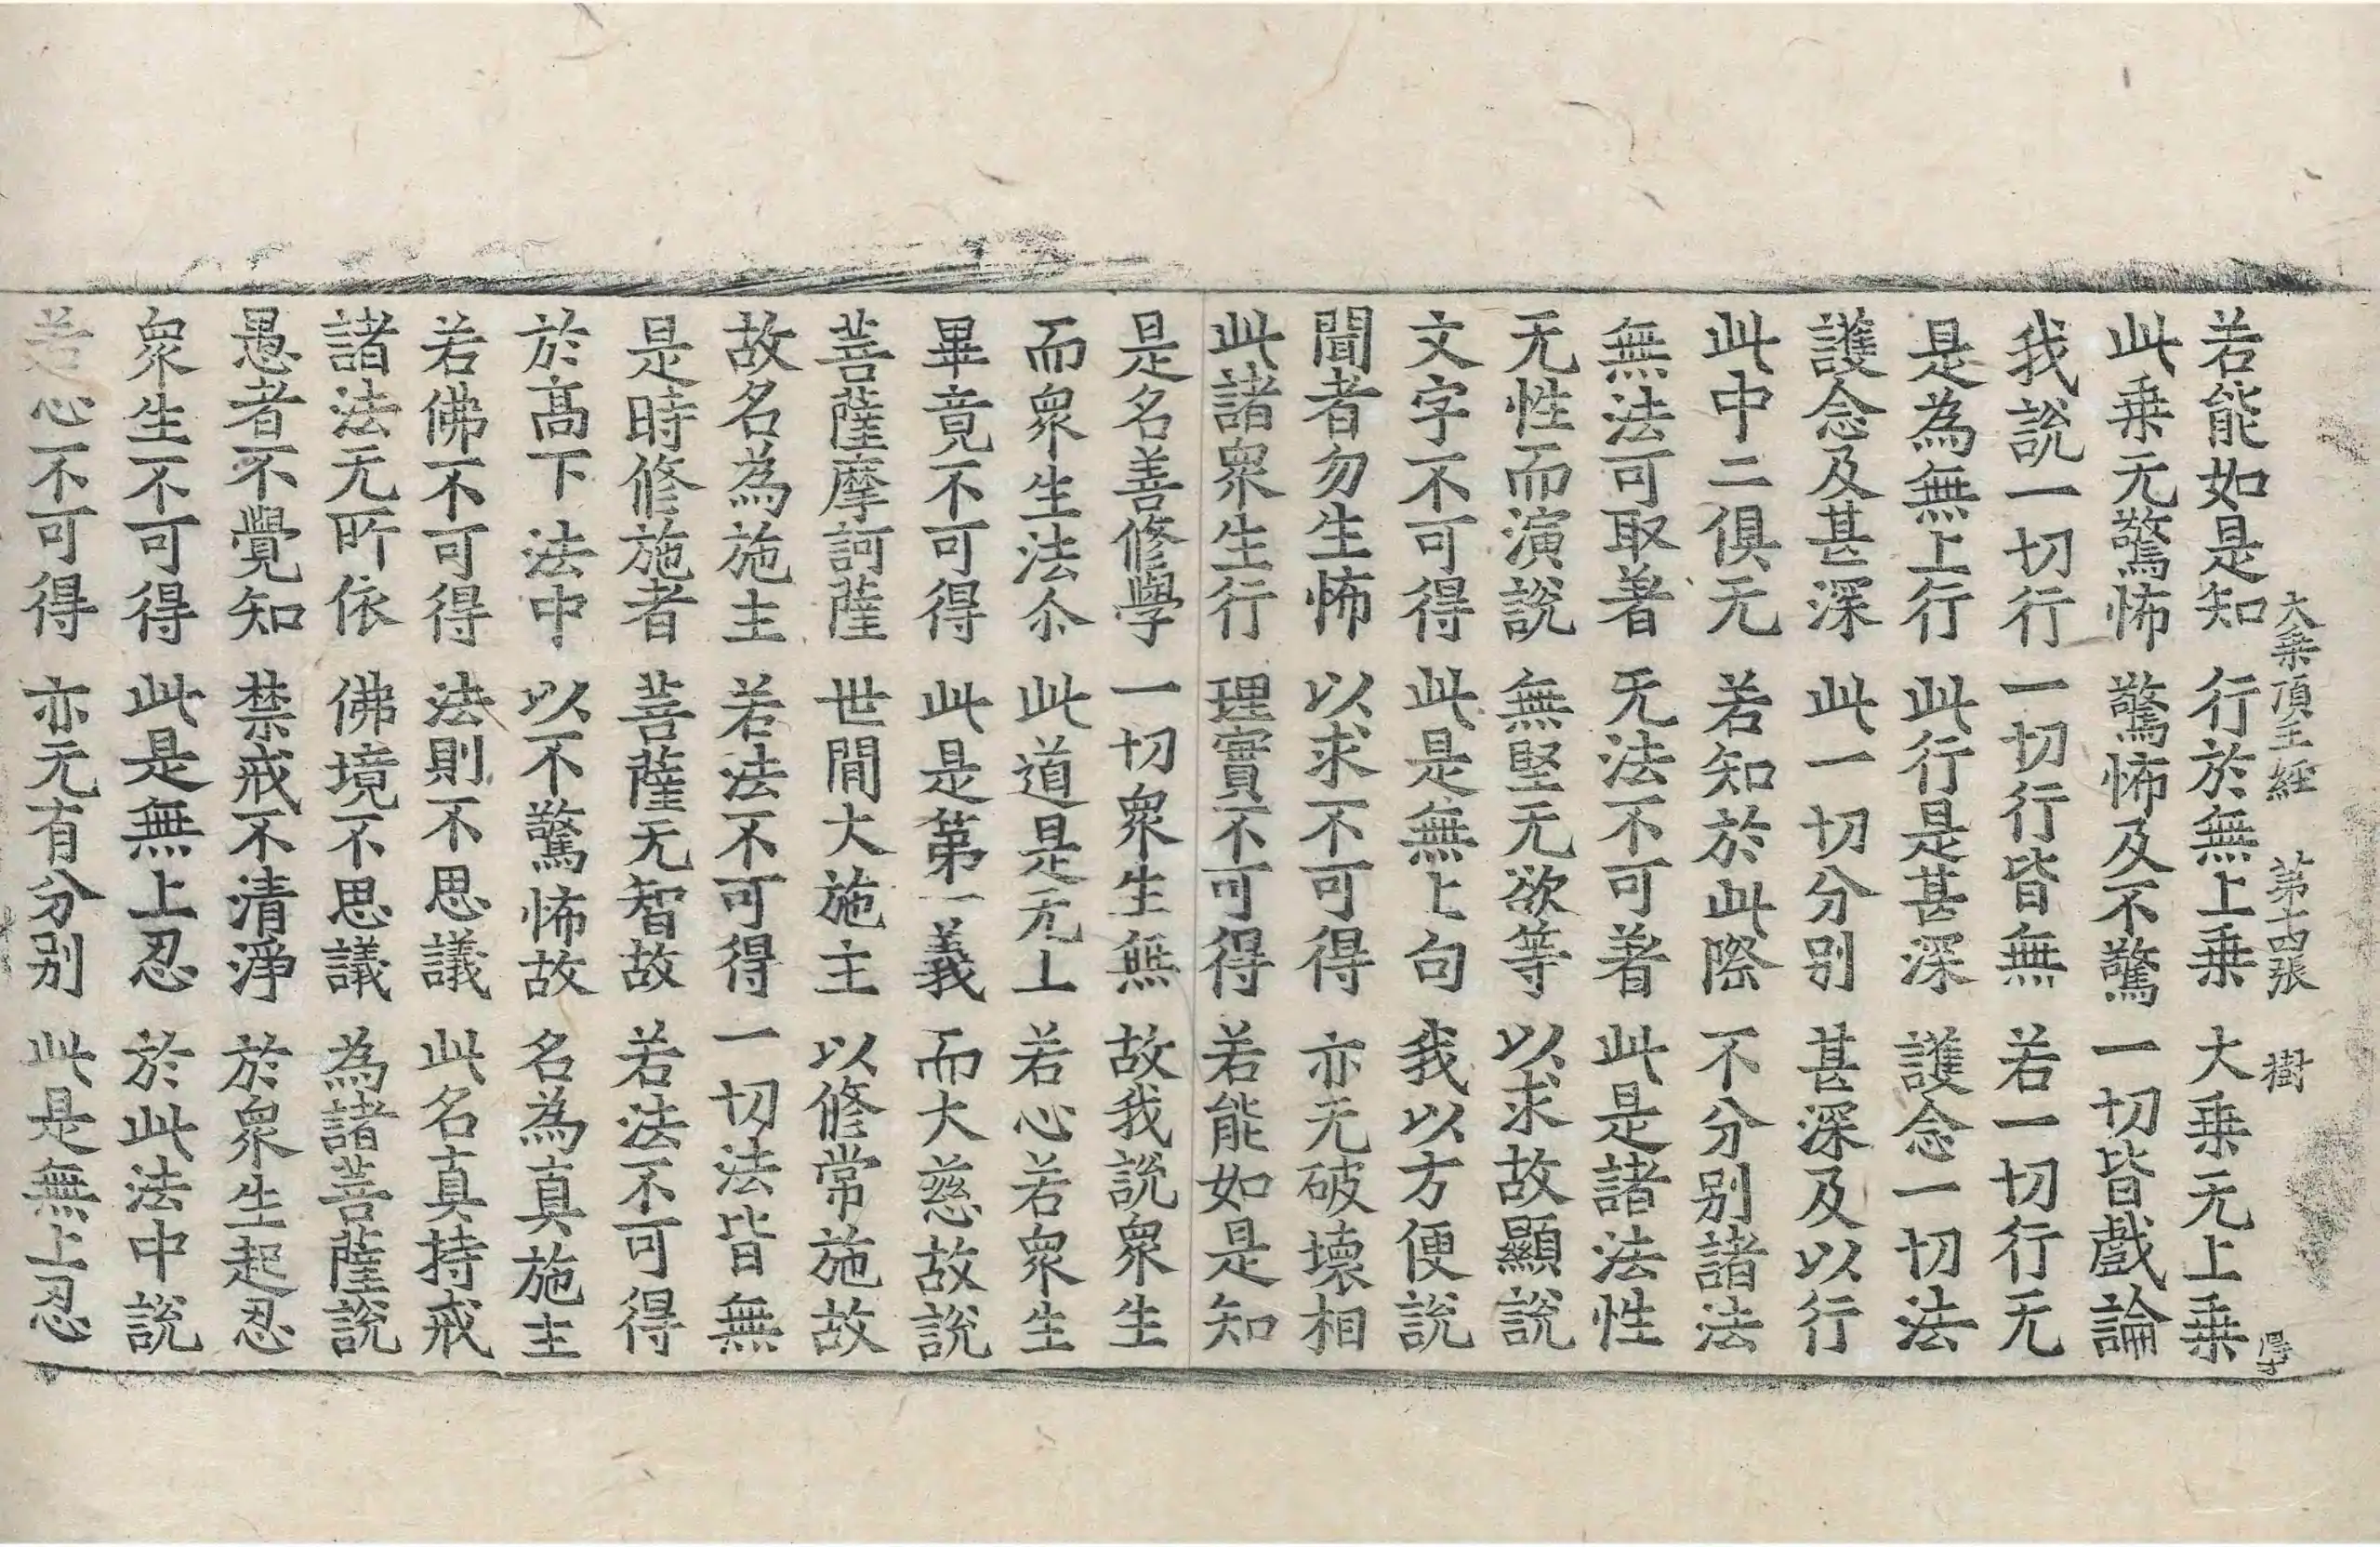 大乗頂王経 第十四張 樹
若能如是知 行於無上乗 大乗无上乗
此乗无驚怖 驚怖及不驚 一切皆戲論
我說一切行 一切行皆無 若一切行无
是為無上行 此行是甚深 護念一切法
護念及甚深 此一切分别 甚深及以行
此中二俱无 若知於此際 不分别諸法
無法可取著 无法不可著 此是諸法性
无性而演說 無堅无欲等 以求故顯說
文字不可得 此是無上句 我以方便說
聞者勿生怖 以求不可得 亦无破壞相
此諸衆生行 理實不可得 若能如是知
是名善修學 一切衆生無 故我說衆生
而衆生法尒 此道是无上 若心若衆生
畢竟不可得 此是第一義 而大慈故說
菩薩摩訶薩 世間大施主 以修常施故
故名為施主 若法不可得 一切法皆無
是時修施者 菩薩无智故 若法不可得
於髙下法中 以不驚怖故 名為真施主
若佛不可得 法則不思議 此名真持戒
諸法无所依 佛境不思議 為諸菩薩說
愚者不覺知 禁戒不清淨 於衆生起忍
衆生不可得 此是無上忍 於此法中說
若心不可得 亦无有分别 此是無上忍